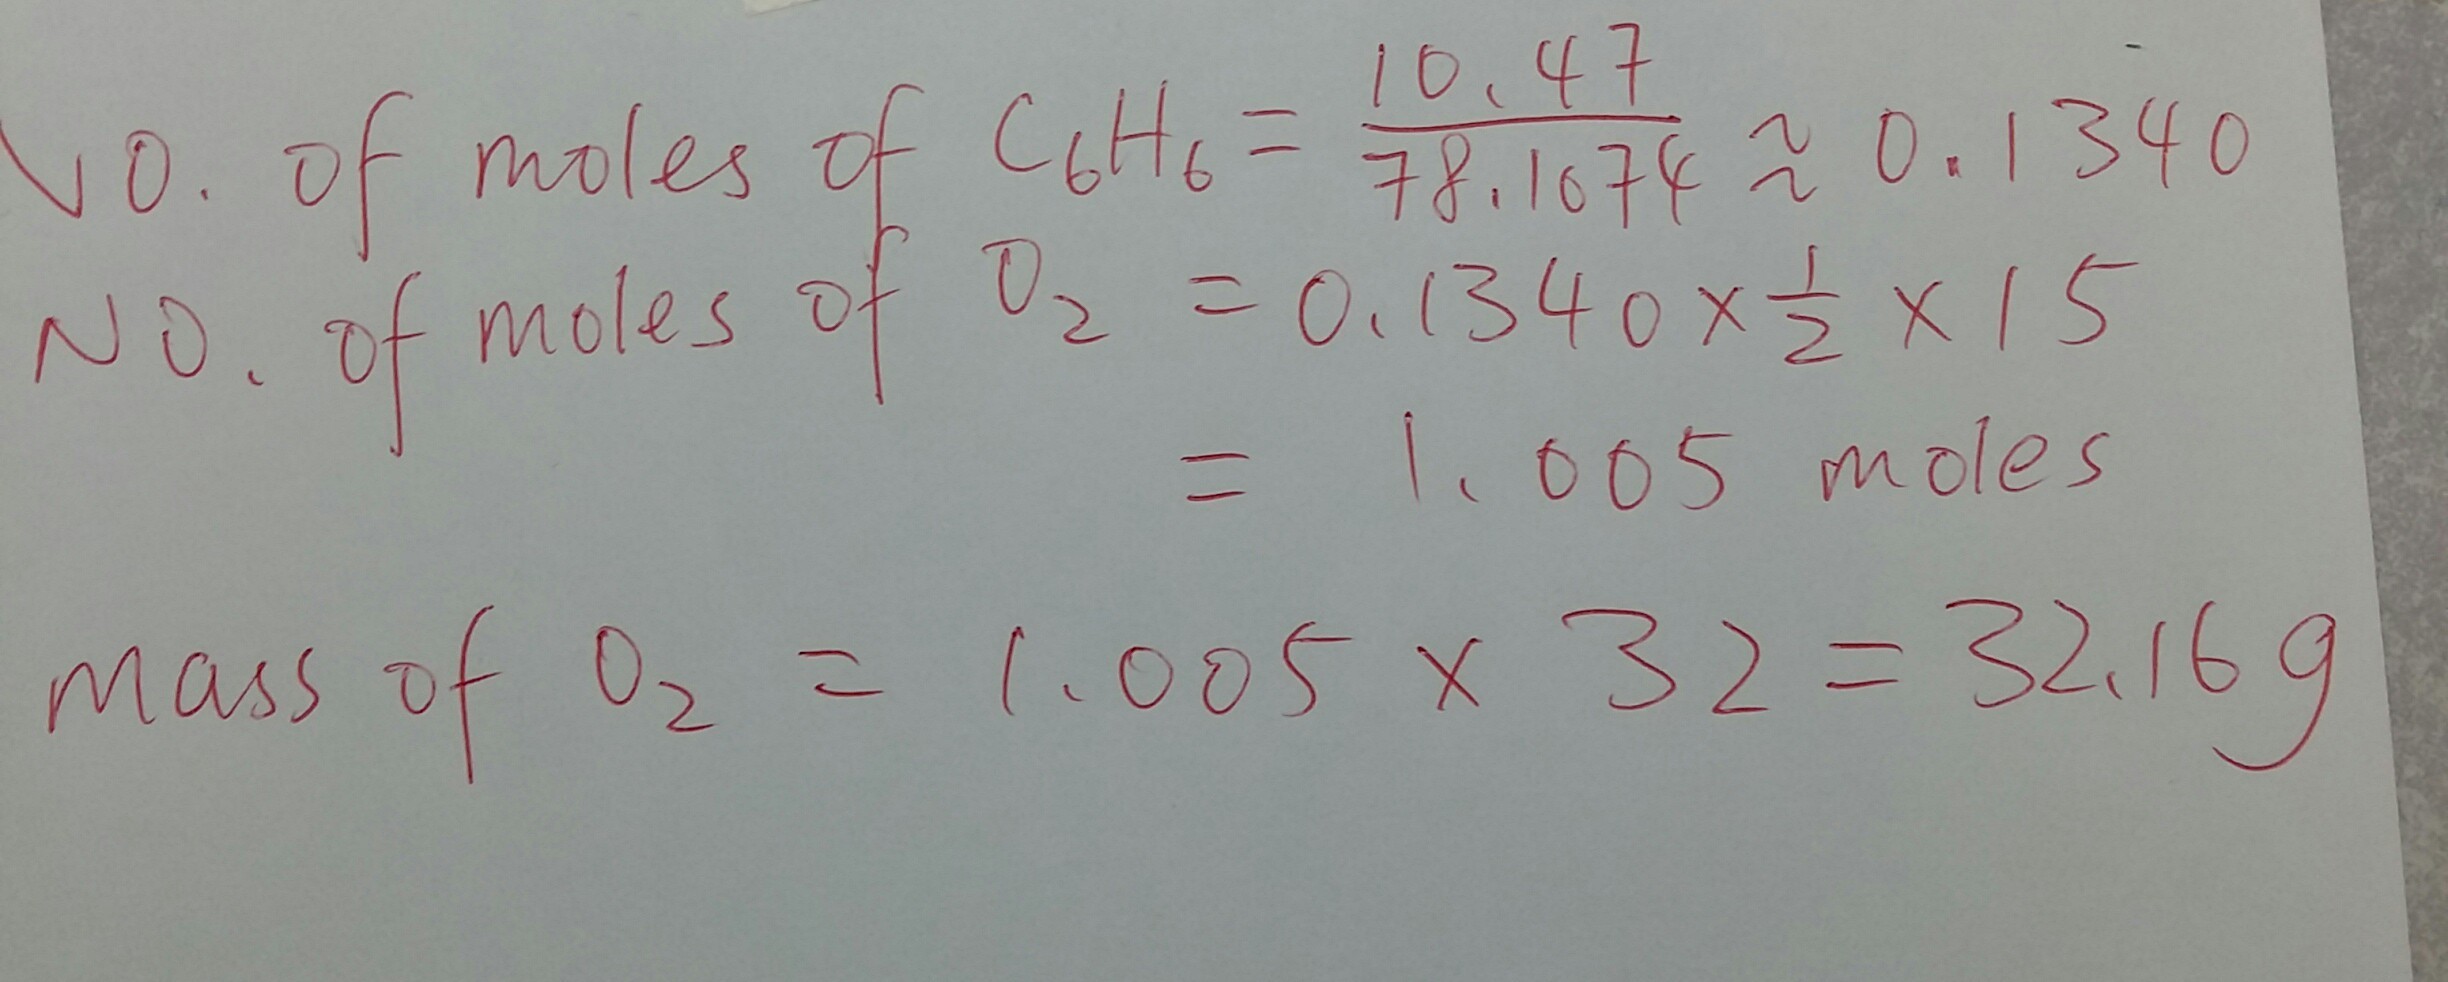 No. of moles of C₆H₆ = 10.47/78.1074 ≈ 0.1340
NO. of moles of O₂ = 0.1340 × 1/2 × 15
= 1.005 moles
mass of O₂ = 1.005 × 32 = 32.16 g